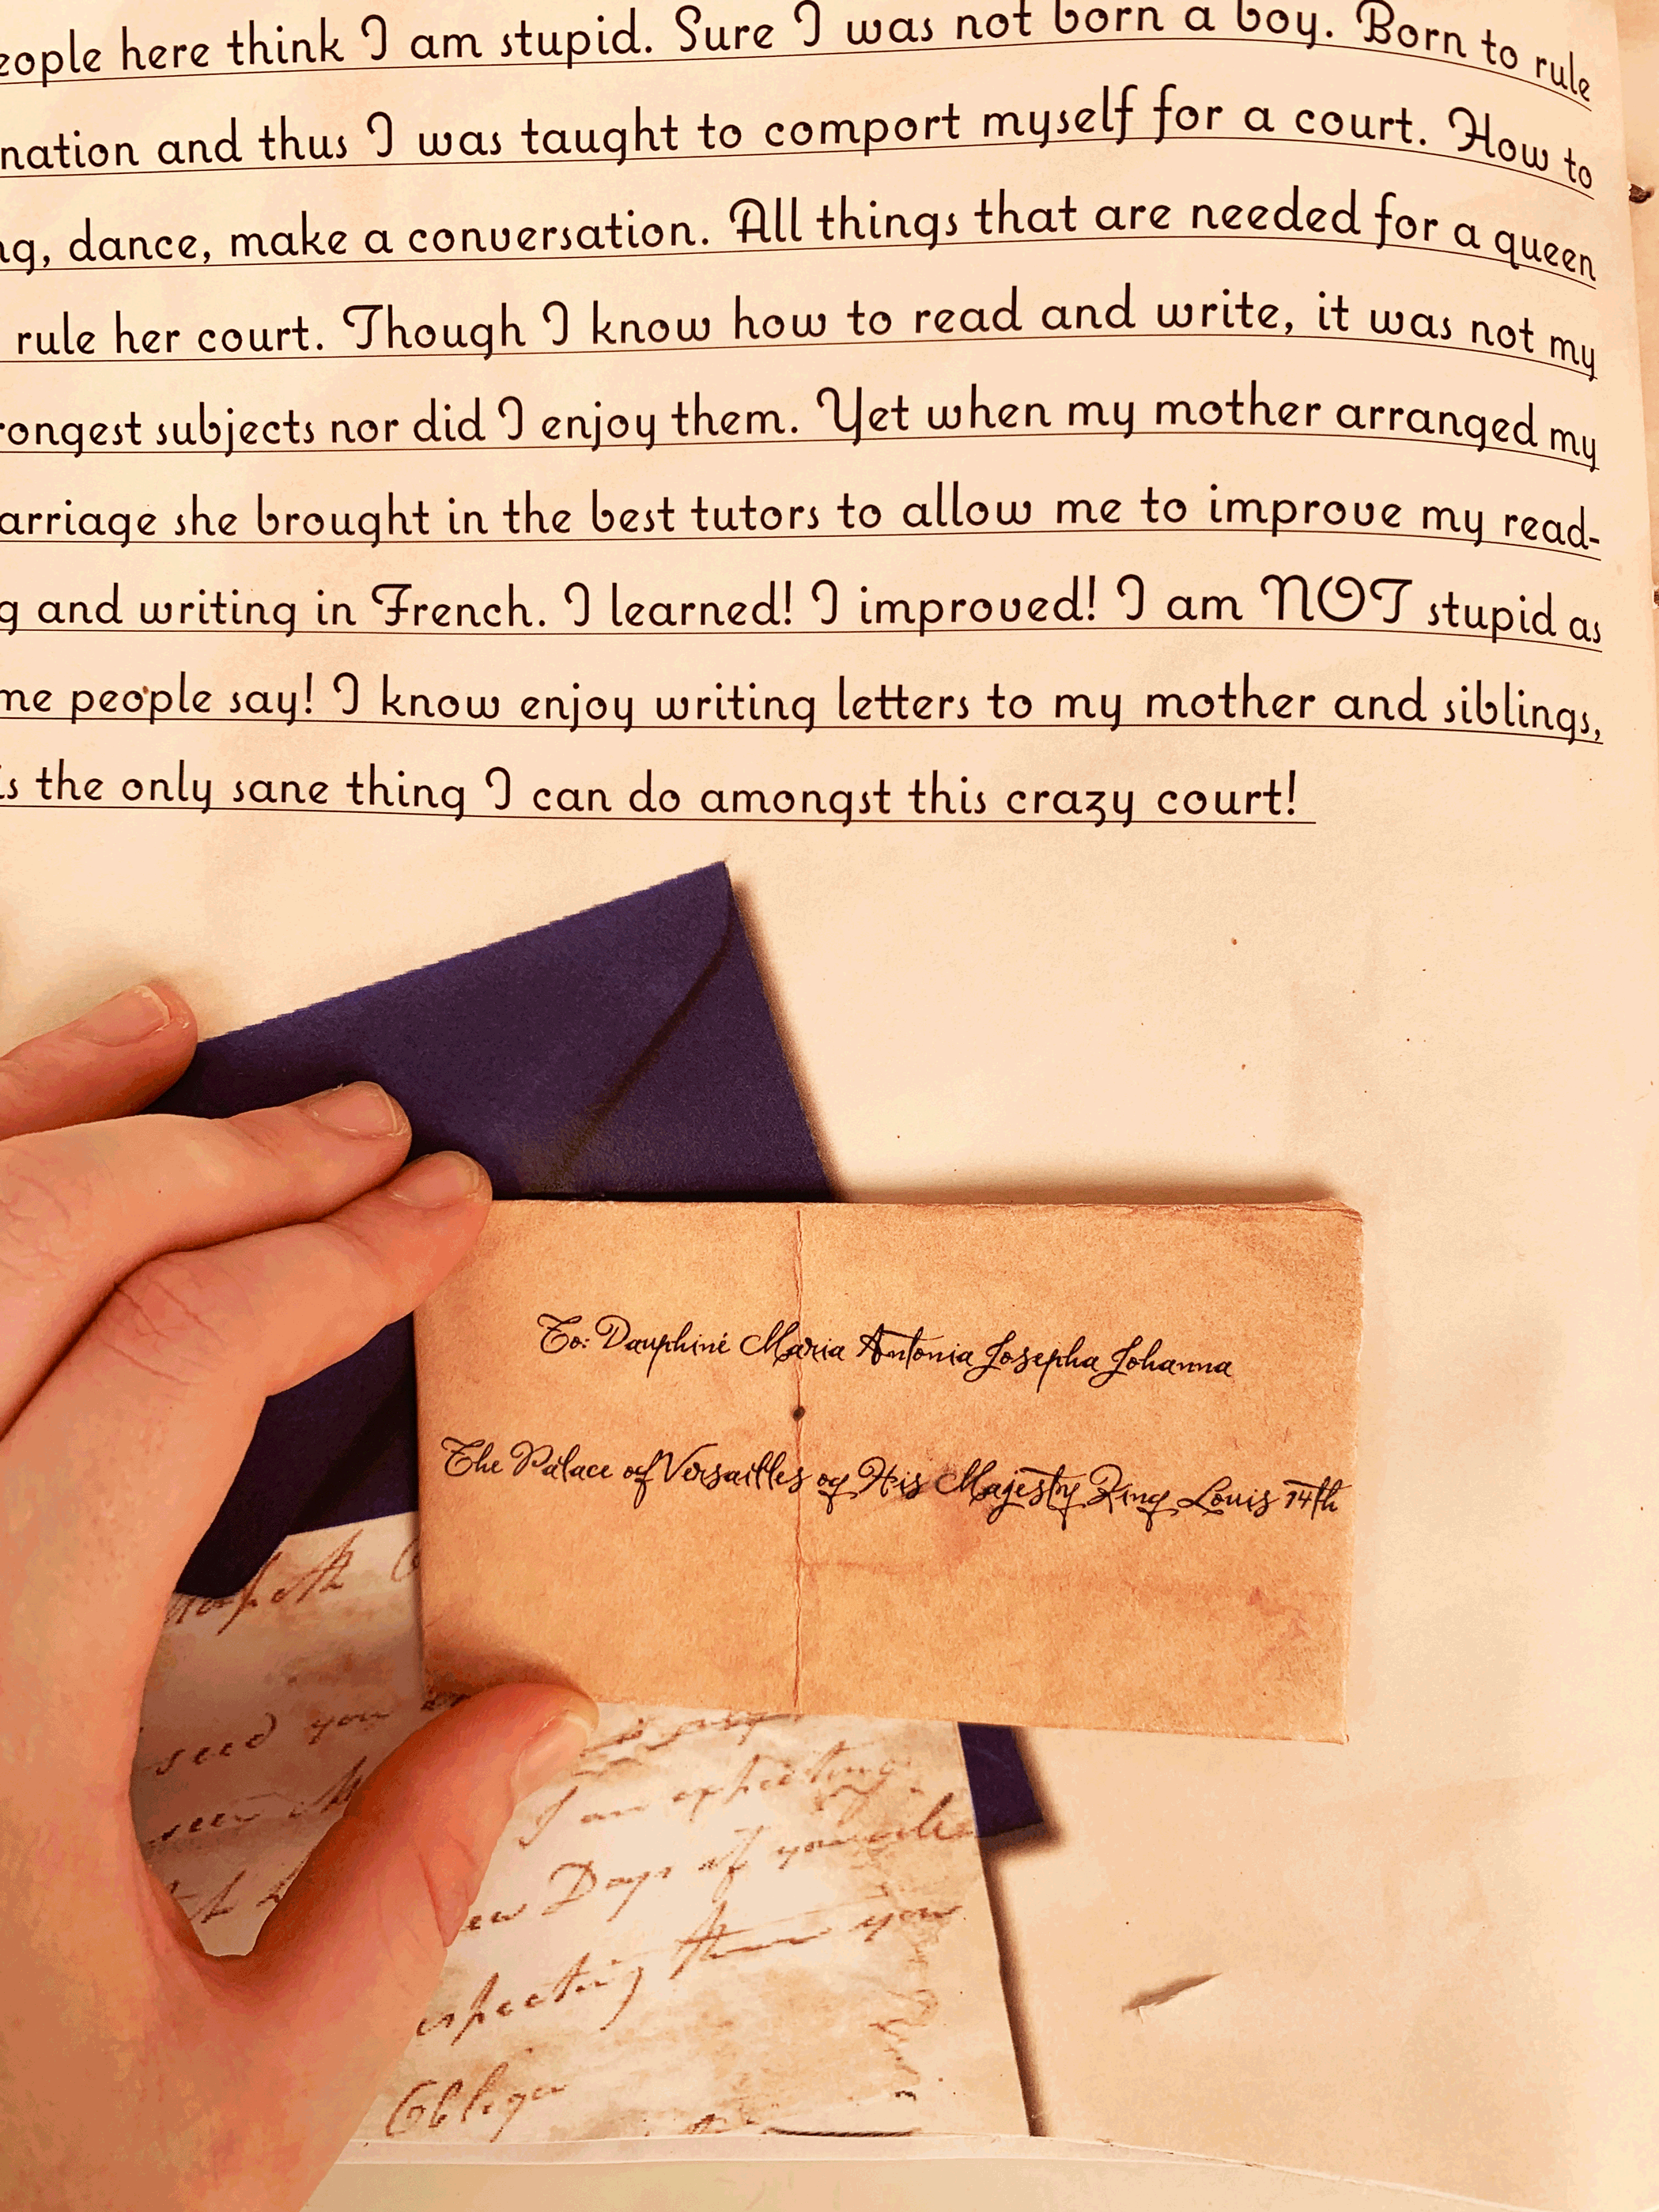 eople here think I am stupid. Sure I was not born a boy. Born to rule
nation and thus I was taught to comport myself for a court. How to
ng, dance, make a conversation. All things that are needed for a queen
rule her court. Though I know how to read and write, it was not my
rongest subjects nor did I enjoy them. Yet when my mother arranged my
arriage she brought in the best tutors to allow me to improve my read-
g and writing in French. I learned! I improved! I am NOT stupid as
me people say! I know enjoy writing letters to my mother and siblings,
is the only sane thing I can do amongst this crazy court!
To: Dauphiné Maria Antonia Josepha Johanna
The Palace of Versailles of His Majesty King Louis 14th
seed you
I am expecting
ew Days of your
expecting them you